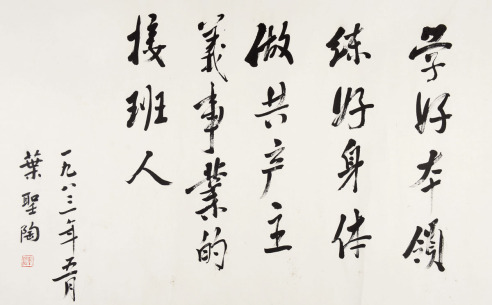 学好本领
练好身体
做共产主
義事業的
接班人
一九八三年五月
葉聖陶